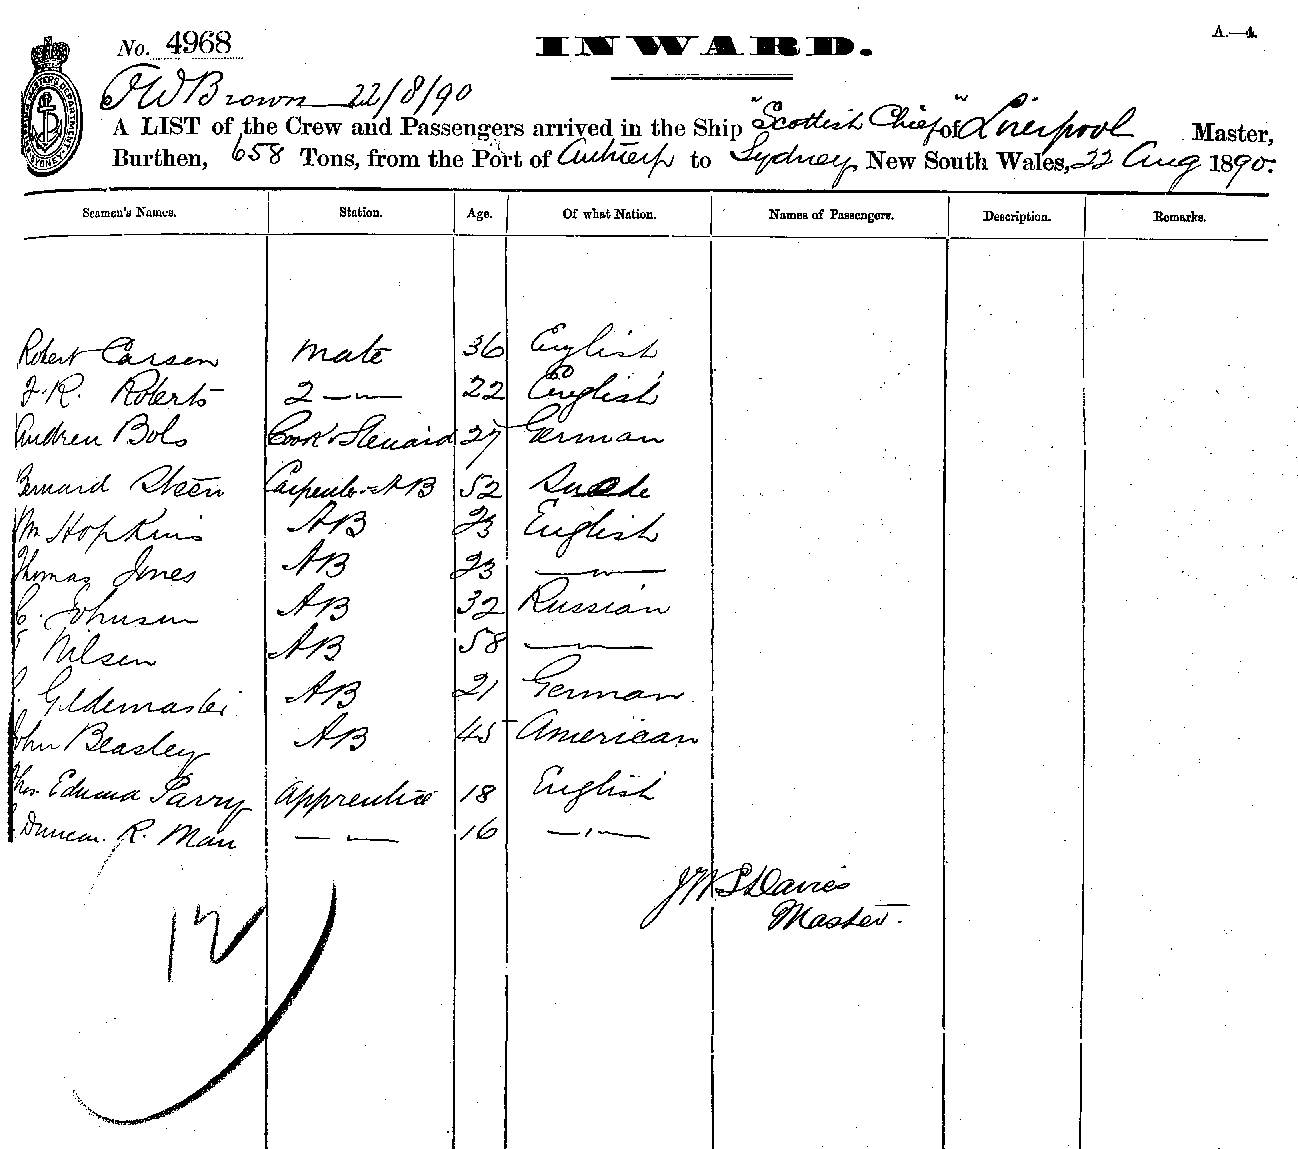 No. 4968
INWARD.
A.—4.
JW Brown 22/8/90
A LIST of the Crew and Passengers arrived in the Ship "Scottish Chief" of Liverpool Master,
Burthen, 658 Tons, from the Port of Antwerp to Sydney, New South Wales, 22 Aug 1890.
Seamen's Names. Station. Age. Of what Nation. Names of Passengers. Description. Remarks.
Robert Carsen Mate 36 English
J. R. Roberts 2 —〃— 22 English
Andrew Bols Cook & Steward 27 German
Bernard Steen Carpenter & AB 52 Suede
Wm Hopkins AB 23 English
Thomas Jones AB 23 —〃—
C. Johnsen AB 32 Russian
Nilsen AB 58 —〃—
Gildemaster AB 21 German
John Beasley AB 45 American
Thos. Edward Parry Apprentice 18 English
Duncan R. Man — 〃— 16 —〃—
JW S Davies
Master.
12